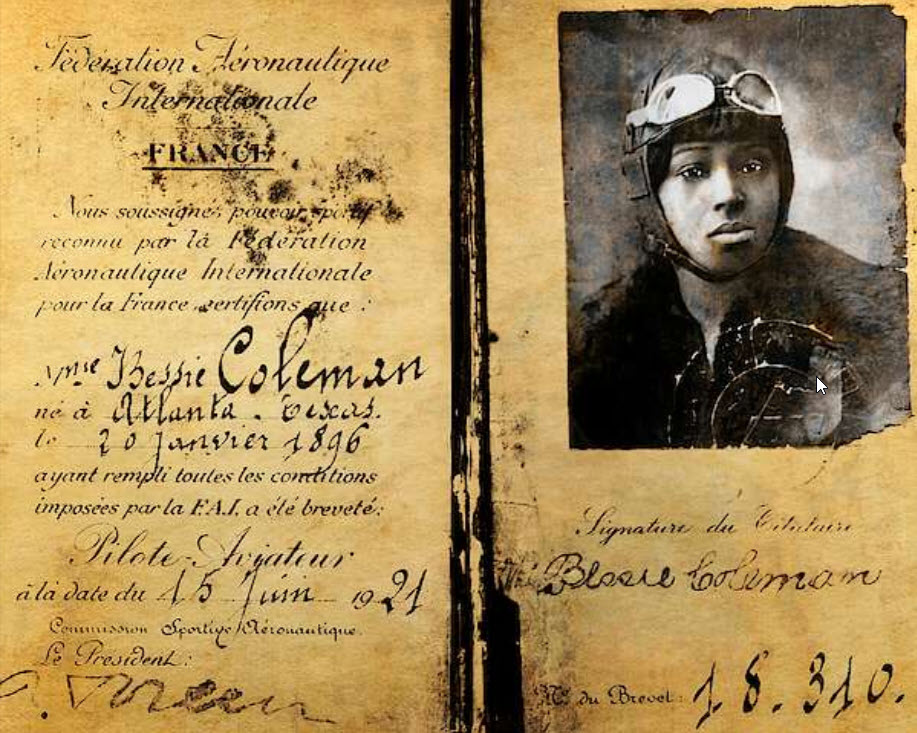 Fédération Aéronautique
Internationale
FRANCE
Nous soussignés pouvoir sportif
reconnu par la Fédération
Aéronautique Internationale
pour la France certifions que :
Mme Bessie Coleman
né à Atlanta. Texas.
le 20 Janvier 1896
ayant rempli toutes les conditions
imposées par la F.A.I. a été breveté:
Pilote-Aviateur
à la date du 15 Juin 1921
Commission Sportive Aéronautique.
Le Président:
Signature du Titulaire
Bessie Coleman
No. du Brevet: 18.310.